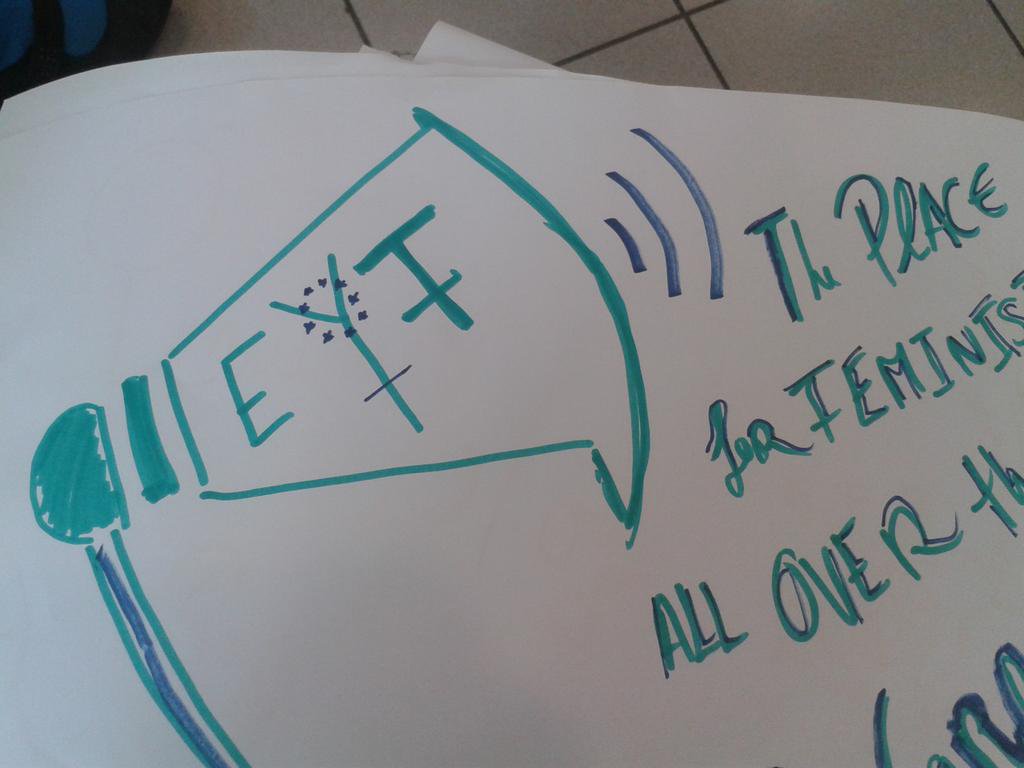 EYF
The PlACE
for FEMINIST
ALL OVER th